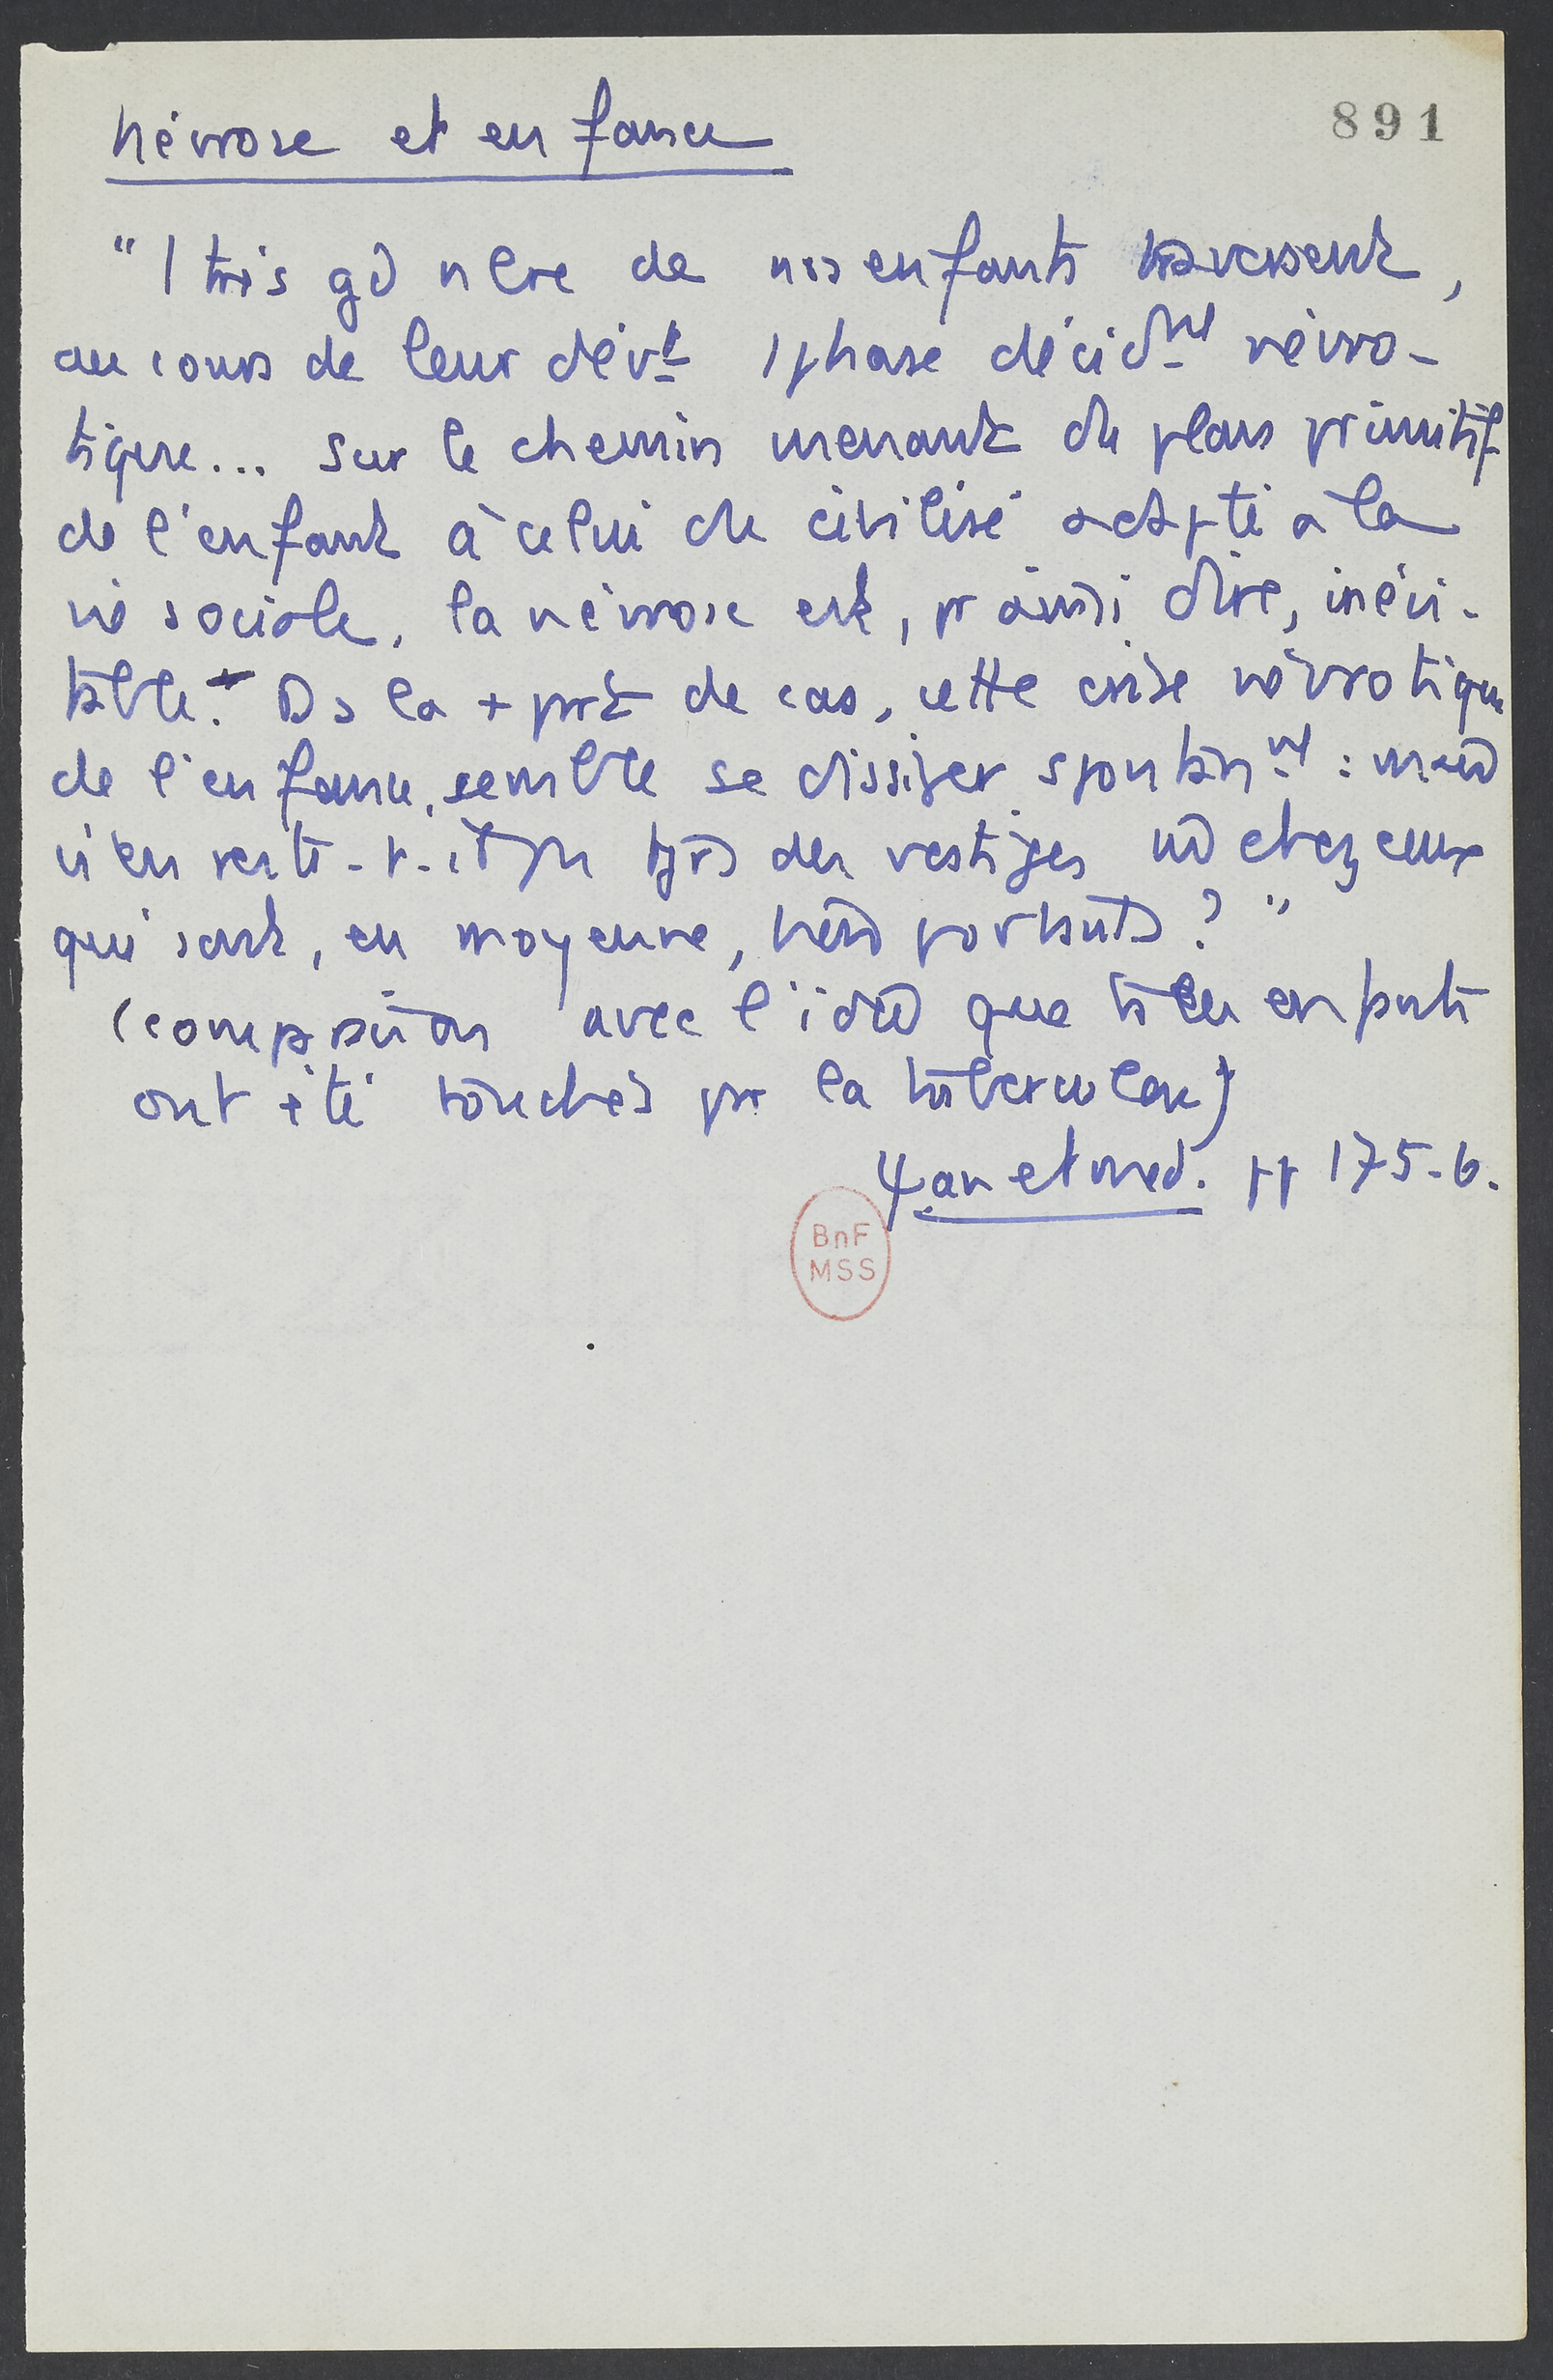 891
Névrose et enfance
"1 très gd nbre de nos enfants traversent,
au cours de leur dévt 1 phase décidmt névro-
tique... Sur le chemin menant du plan primitif
de l'enfant à celui du civilisé adapté à la
vie sociale, la névrose est, pr ainsi dire, inévi-
table. Ds la + part de cas, cette crise névrotique
de l'enfance semble se dissiper spontanmt : mais
n'en reste-t-il pas tjrs des vestiges mê chez ceux
qui sont, en moyenne, bien portants ? "
(comparaison avec l'idée que ts les enfants
ont été touchés pr la tuberculose)
Ψan et med. pp 175-6.
BnF
MSS